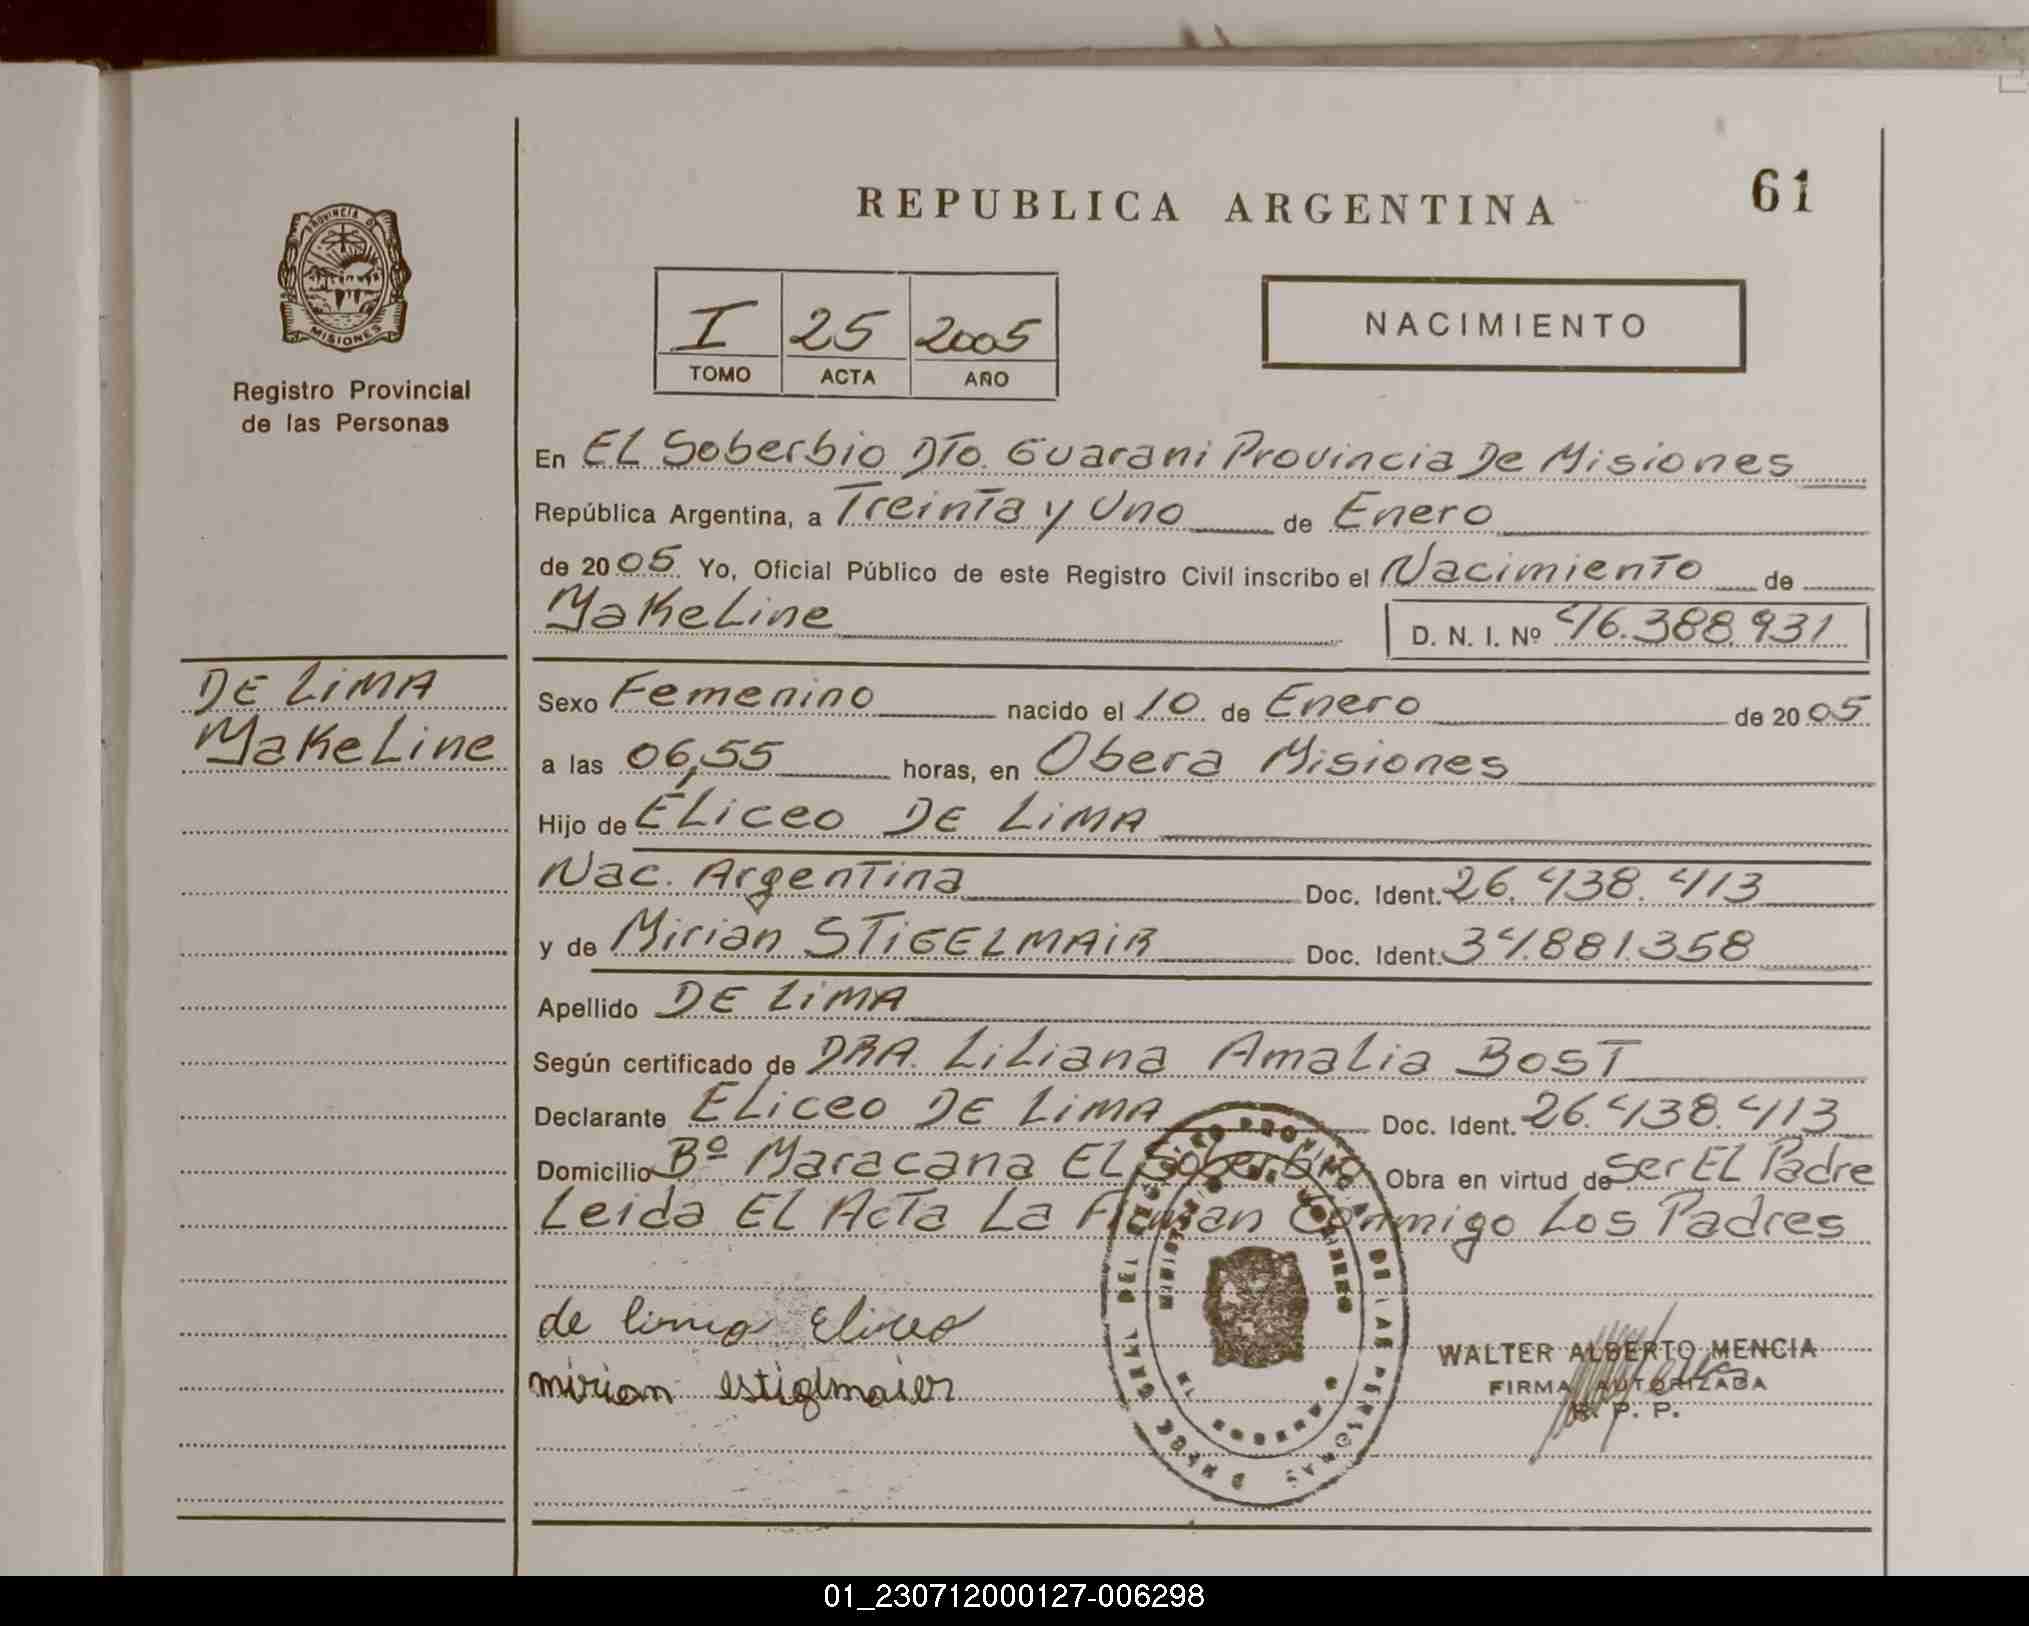 REPUBLICA ARGENTINA
61
PROVINCIA DE
MISIONES
Registro Provincial
de las Personas
I 25 2005
TOMO ACTA AÑO
NACIMIENTO
En EL Soberbio DTo. Guarani Provincia De Misiones
República Argentina, a Treinta y Uno de Enero
de 2005 Yo, Oficial Público de este Registro Civil inscribo el Nacimiento de
MakeLine D. N. I. Nº 46.388.931
DE LiMA
MakeLine
Sexo Femenino nacido el 10 de Enero de 2005
a las 06,55 horas, en Obera Misiones
Hijo de ELiceo DE LiMA
Nac. Argentina Doc. Ident. 26.438.413
y de Mirian STiGELMAiR Doc. Ident. 34.881.358
Apellido DE LiMA
Según certificado de DRA. LiLiana AmaLia BOST
Declarante ELiceo DE LiMA Doc. Ident. 26.438.413
Domicilio Bº Maracana EL Soberbio Obra en virtud de Ser EL Padre
Leida EL Acta La Firman Conmigo Los Padres
de lima Eliceo
mirian estiglmaier
WALTER ALBERTO MENCIA
FIRMA AUTORIZADA
R. P. P.
01_230712000127-006298